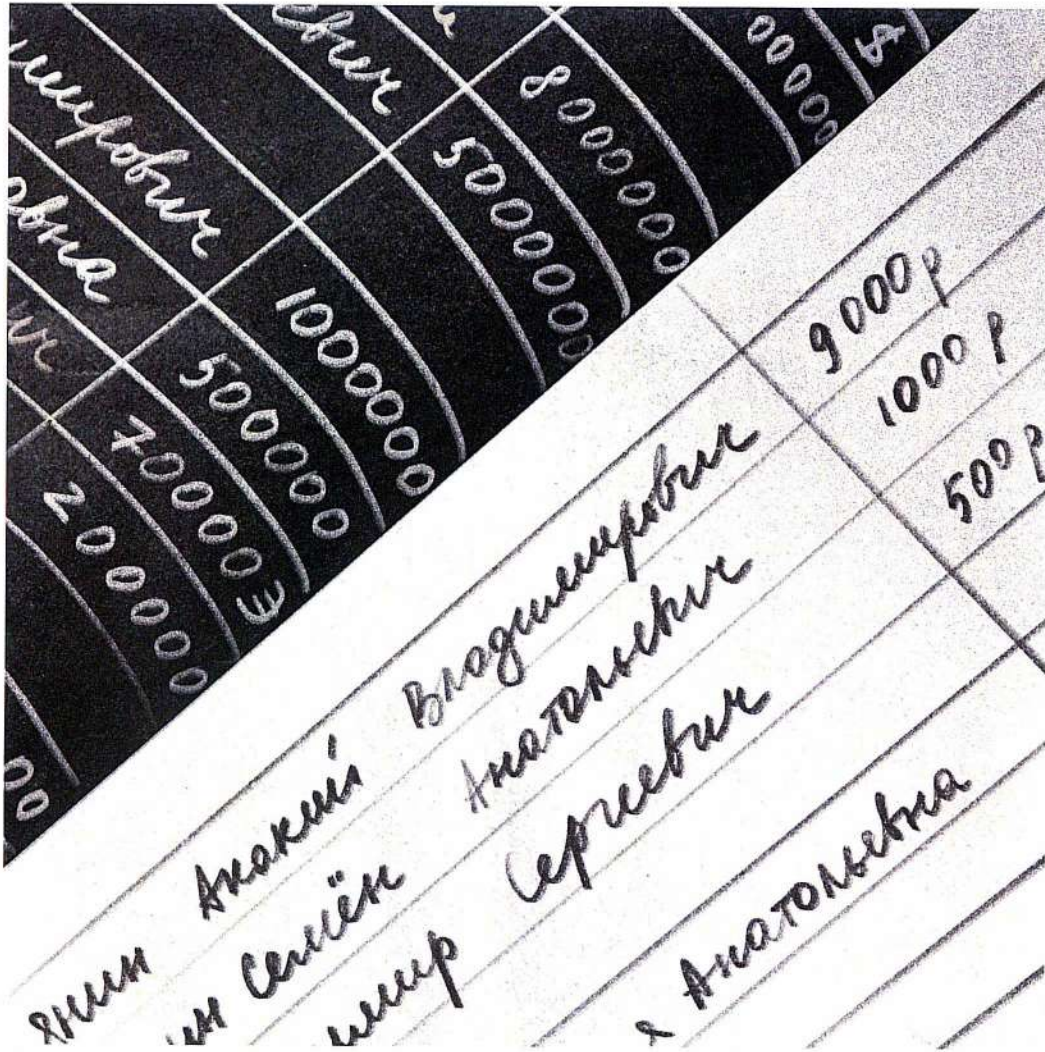 евич
8000000
5000000
1000000
500000
70000€
200000
00
янин Акакий Владимирович 9000р
ин Семён Анатольевич 1000р
имир Сергеевич 500р
я Анатольевна